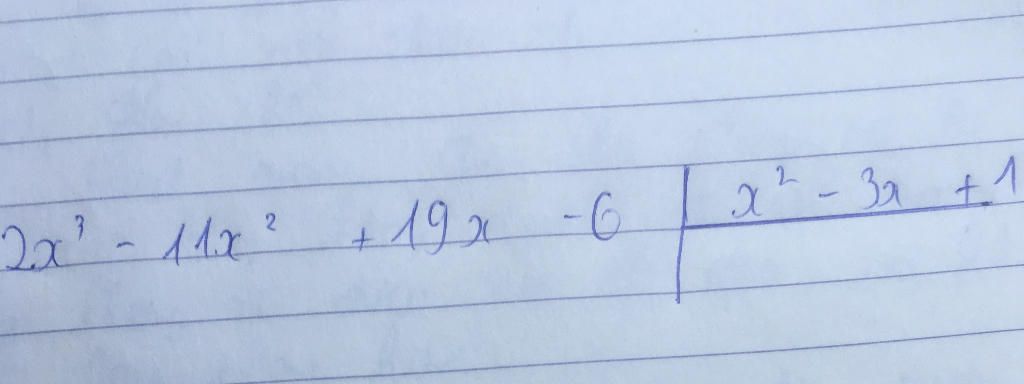 2x³ - 11x² + 19x - 6 | x² - 3x + 1